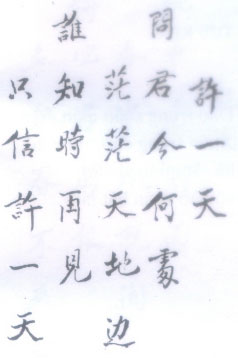 許一天
問君今何處
茫茫天地边
誰知時再見
只信許一天